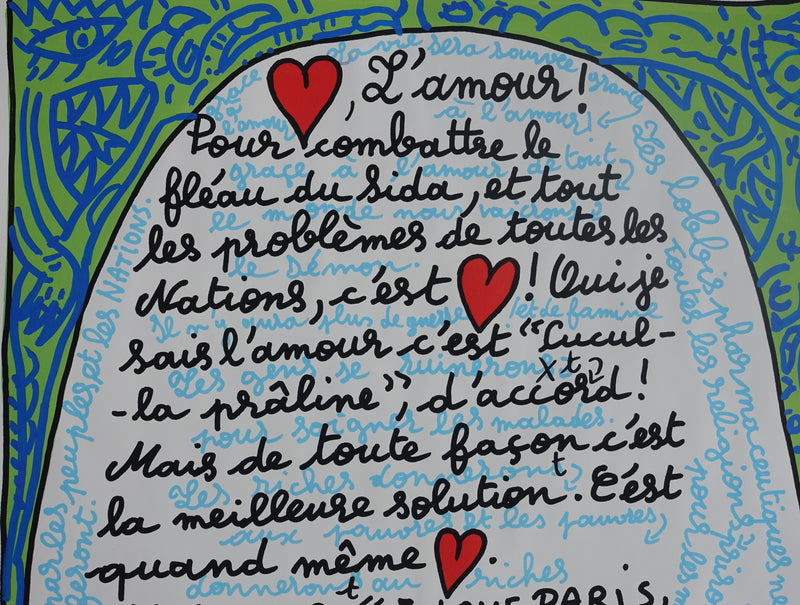 L'amour!
Pour combattre le
fléau du Sida, et tout
les problèmes de toutes les
Nations, c'est !  Oui je
sais l'amour c'est "Cucul-
-la prâline", d'accord!
Mais de toute façon c'est
la meilleure solution. C'est
quand même .
La vie sera sauvée
grace
à l'amour!
grâce à l'amour tout
le monde nous vaicrons
le Démon.
Il n'y aura plus de guerre et de famine
Les gens se ruinerons
pour soigner les malades.
Les riches donneront
aux pauvres et les pauvres
donneront au riches
Les lobbis pharmaceutiques
toutes les religions
les peuples et les NATIONS.
PARIS,